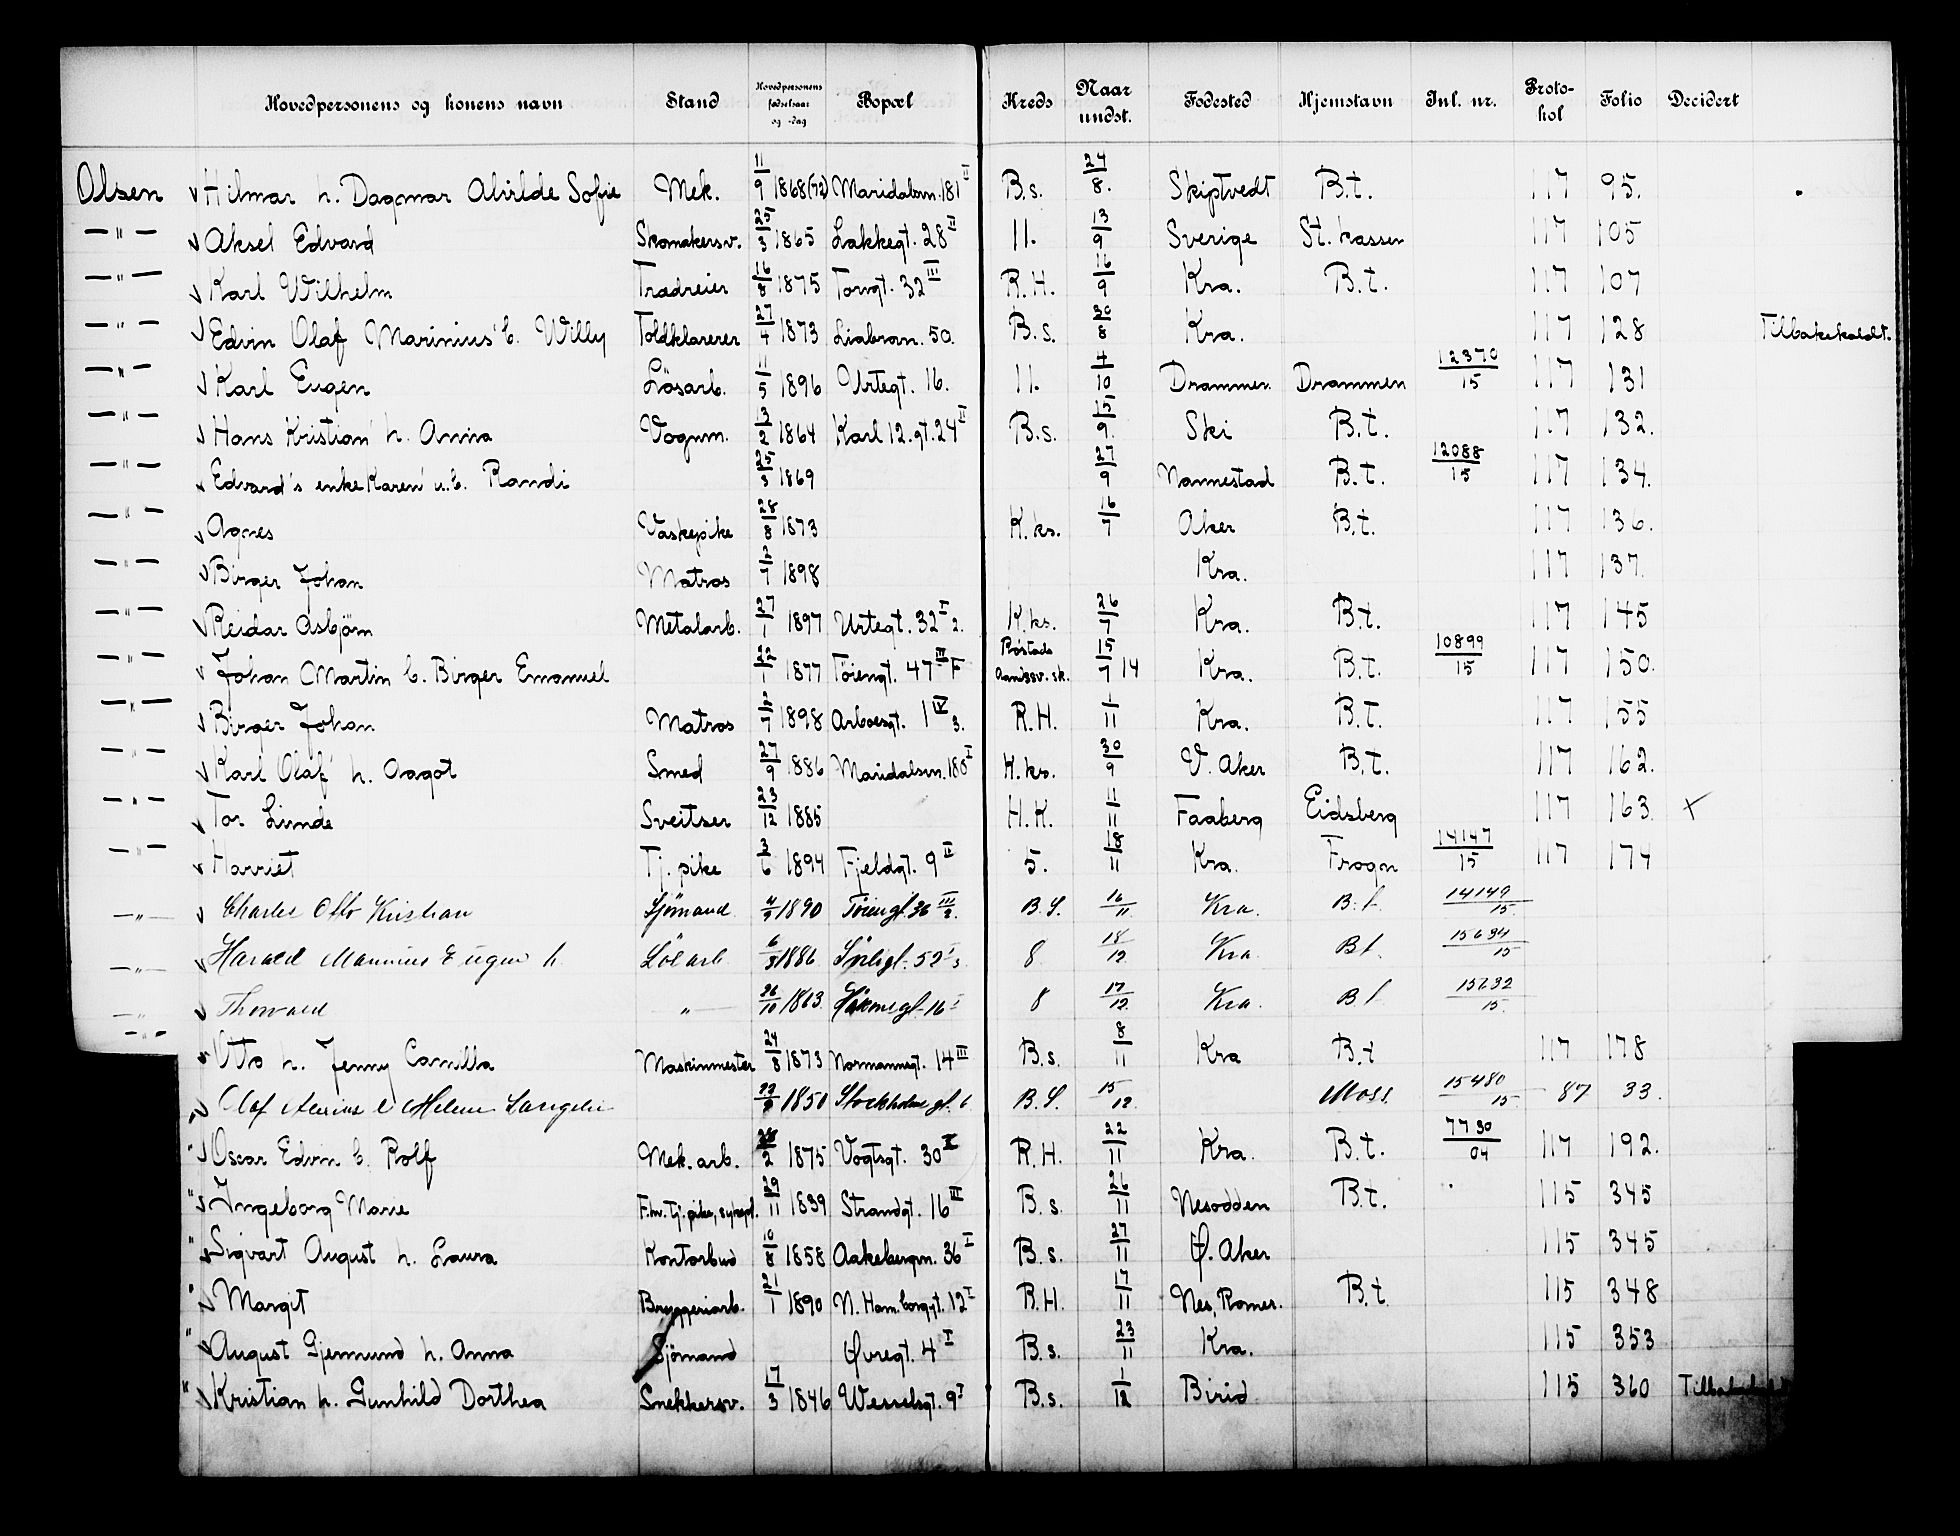 Hovedpersonens og konens navn Stand Hovedpersonens fødselsaar og -dag Bopæl Kreds Naar undst. Fødested Hjemstavn Inl. nr. Proto-kol Folio Decidert
Olsen Hilmar h. Dagmar Alvilde Sofie Mek. 11/9 1868(72) Maridalsvn. 181 II B.s. 24/8. Skiptvedt B.t. 117 95.
—"— Aksel Edvard Skomakersv. 25/3 1865 Lakkegt. 28 II 11. 13/9 Sverige St. kassen 117 105
—"— Karl Wilhelm Trædreier 16/8 1875 Torvgt. 32 III R.H. 16/9 Kra. B.t. 117 107
—"— Edvin Olaf Marinius b. Willy Toldklarerer 27/4 1873 Liabrovn. 50. B.s. 30/8 Kra. 117 128 Tilbakekaldt.
—"— Karl Eugen Lösarb. 1/5 1896 Urtegt. 16. 11. 4/10 Drammen Drammen 12370/15 117 131
—"— Hans Kristian h. Anna Vognm. 13/2 1864 Karl 12. gt. 24 II B.s. 15/9. Ski B.t. 117 132.
—"— Edvard's enke Karen u.b. Randi 25/3 1869 27/9 Nannestad B.t. 12088/15 117 134.
—"— Agnes Vaskepike 28/8 1873 K.ks. 16/7 Aker B.t. 117 136.
—"— Birger Johan Matros 2/7 1898 Kra. 117 137.
—"— Reidar Asbjörn Metalarb. 27/1 1897 Urtegt. 32 I 2. K.ks. 26/7 Kra. B.t. 117 145
—"— Johan Martin b. Birger Emanuel 22/1 1877 Töiengt. 47 III F Röstads aandssv. sk. 15/7 14 Kra. B.t. 10899/15 117 150.
—"— Birger Johan Matros 2/7 1898 Arboesgt. 1 IV 3. R.H. 1/11 Kra. B.t. 117 155
—"— Karl Olaf h. Aagot Smed 27/9 1886 Maridalsvn. 180 I K.ks. 30/9 V. Aker B.t. 117 162.
—"— Tor Lunde Sveitser 23/12 1885 H.K. 11/11 Faaberg Eidsberg 117 163. x
—"— Harriet Tj. pike 3/6 1894 Fjeldgt. 9 II 5. 18/11 Kra. Frogn 14147/15 117 174
—"— Charles Otto Kristian Sjömand 4/9 1890 Töiengt. 36 III 2. B.S. 16/11 Kra. B.t. 14149/15
—"— Harald Marinius Eugen h. Lösarb. 6/3 1886 Sörligt. 52 I 3 8 18/12 Kra B.t 15634/15
—"— Thorvald —"— 26/10 1863 16 I 8 17/12 Kra. B.t 15632/15.
—"— Otto h. Jenny Camilla Maskinmester 24/8 1873 Normannsgt. 14 III B.s. 8/11 Kra B.t 117 178
Olaf 1850 Stockholms gt. 6 B.S. 15/12 Moss. 15480/15 87 33.
" Oscar Edvin b. Rolf Mek. arb. 28/2 1875 Vogtsgt. 30 II R.H. 22/11 Kra. B.t. 7730/04 117 192.
" Ingeborg Marie F.hv. tj. pike, 29/11 1839 Strandgt. 16 III B.s. 26/11 Nesodden B.t. 115 345
" Sigvart August h. Laura Kontorbud 10/8 1858 Aakebergvn. 36 I B.s. 27/11 Ø. Aker 115 345
" Margit Bryggeriarb. 21/1 1890 N. Hamborggt. 12 I R.H. 17/11 Nes, Romer. B.t. 115 348
" August Gjermund h. Anna Sjömand Øvregt. 4 I B.s. 23/11 Kra. 115 353
" Kristian h. Gunhild Dorthea Snekkersv. 17/3 1846 Wesselsgt. 9 I B.s. 1/12 Birid 115 360